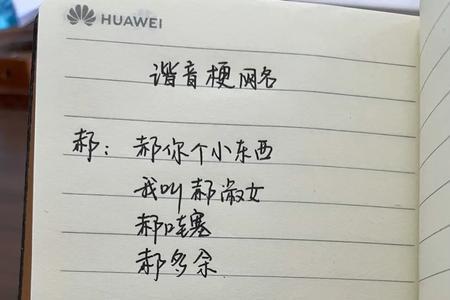 HUAWEI
谐音梗网名
郝：郝你个小东西
我叫郝淑女
郝哇塞
郝多余